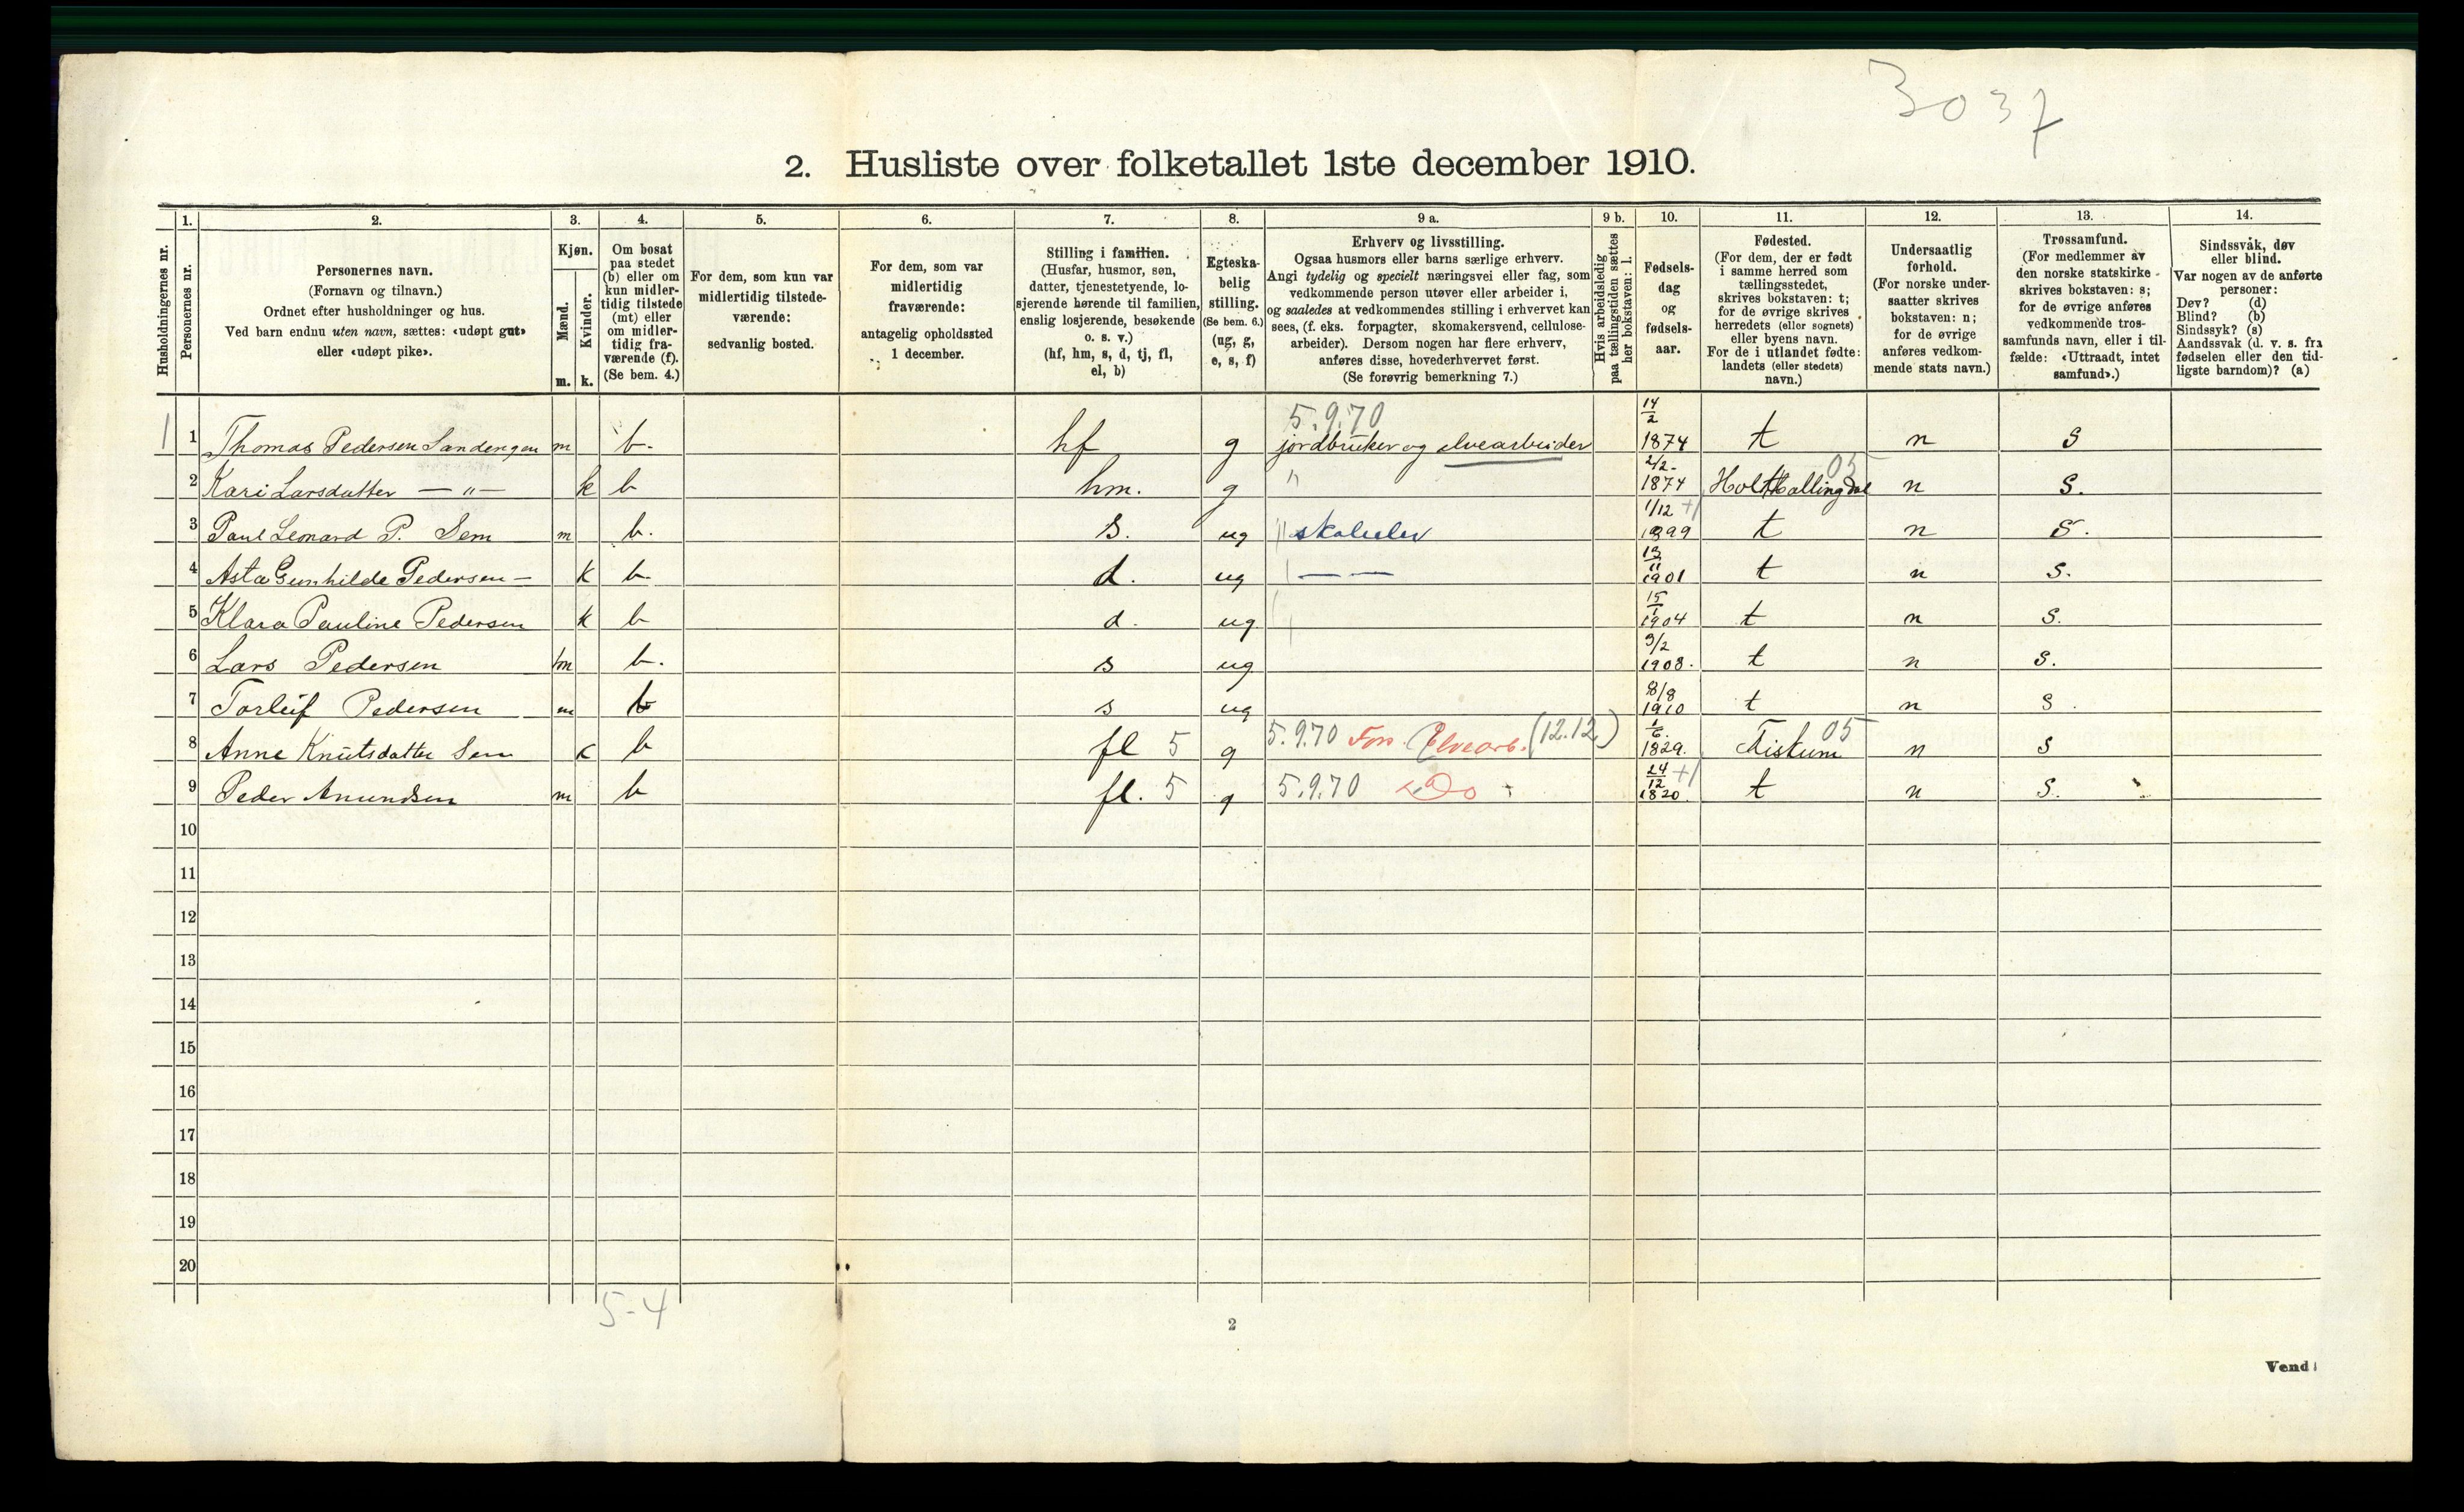 3037
2. Husliste over folketallet 1ste december 1910.
Husholdningernes nr.
1.
Personernes nr.
2.
Personernes navn.
(Fornavn og tilnavn.)
Ordnet efter husholdninger og hus.
Ved barn endnu uten navn, sættes: «udøpt gut»
eller «udøpt pike».
3.
Kjøn.
Mænd.
Kvinder.
m. k.
4.
Om bosat
paa stedet
(b) eller om
kun midler-
tidig tilstede
(mt) eller
om midler-
tidig fra-
værende (f).
(Se bem. 4.)
5.
For dem, som kun var
midlertidig tilstede-
værende:
sedvanlig bosted.
6.
For dem, som var
midlertidig
fraværende:
antagelig opholdssted
1 december.
7.
Stilling i familien.
(Husfar, husmor, søn,
datter, tjenestetyende, lo-
sjerende hørende til familien,
enslig losjerende, besøkende
o. s. v.)
(hf, hm, s, d, tj, fl,
el, b)
8.
Egteska-
belig
stilling.
(Se bem. 6.)
(ug, g,
e, s, f)
9 a.
Erhverv og livsstilling.
Ogsaa husmors eller barns særlige erhverv.
Angi tydelig og specielt næringsvei eller fag, som
vedkommende person utøver eller arbeider i,
og saaledes at vedkommendes stilling i erhvervet kan
sees, (f. eks. forpagter, skomakersvend, cellulose-
arbeider). Dersom nogen har flere erhverv,
anføres disse, hovederhvervet først.
(Se forøvrig bemerkning 7.)
9 b.
Hvis arbeidsledig
paa tællingstiden sættes
her bokstaven: l.
10.
Fødsels-
dag
og
fødsels-
aar.
11.
Fødested.
(For dem, der er født
i samme herred som
tællingsstedet,
skrives bokstaven: t;
for de øvrige skrives
herredets (eller sognets)
eller byens navn.
For de i utlandet fødte:
landets (eller stedets)
navn.)
12.
Undersaatlig
forhold.
(For norske under-
saatter skrives
bokstaven: n;
for de øvrige
anføres vedkom-
mende stats navn.)
13.
Trossamfund.
(For medlemmer av
den norske statskirke
skrives bokstaven: s;
for de øvrige anføres
vedkommende tros-
samfunds navn, eller i til-
fælde: «Uttraadt, intet
samfund».)
14.
Sindssvak, døv
eller blind.
Var nogen av de anførte
personer:
Døv? (d)
Blind? (b)
Sindssyk? (s)
Aandssvak (d. v. s. fra
fødselen eller den tid-
ligste barndom)? (a)
1 1 Thomas Pedersen Sandengen m b. hf g 5.9.70 jordbruker og elvearbeider 14/2 1874 t n S
2 Kari Larsdatter — " — k b hm. g " 2/2- 1874 Hol Hallingdal 05 n S.
3 Paul Lenard P. Sem m b. s. ug " skoleelev 1/12 1899 t n S.
4 Asta Gunhilde Pedersen — k b. d. ug — — 13/11 1901 t n S.
5 Klara Pauline Pedersen k b d. ug. 15/1 1904 t n S.
6 Lars Pedersen m b. s ug 9/2 1908. t n S.
7 Torleif Pedersen m b s ug 8/8 1910 t n S.
8 Anne Knutsdatter Sem k b fl 5 g 5.9.70 Fors. Elvearb. (12.12) 1/6. 1829. Fiskum 05 n S
9 Peder Amundsen m b fl. 5 g 5.9.70 Do 24/12 1820. t n S.
10
11
12
13
14
15
16
17
18
19
20
5-4
2
Vend!